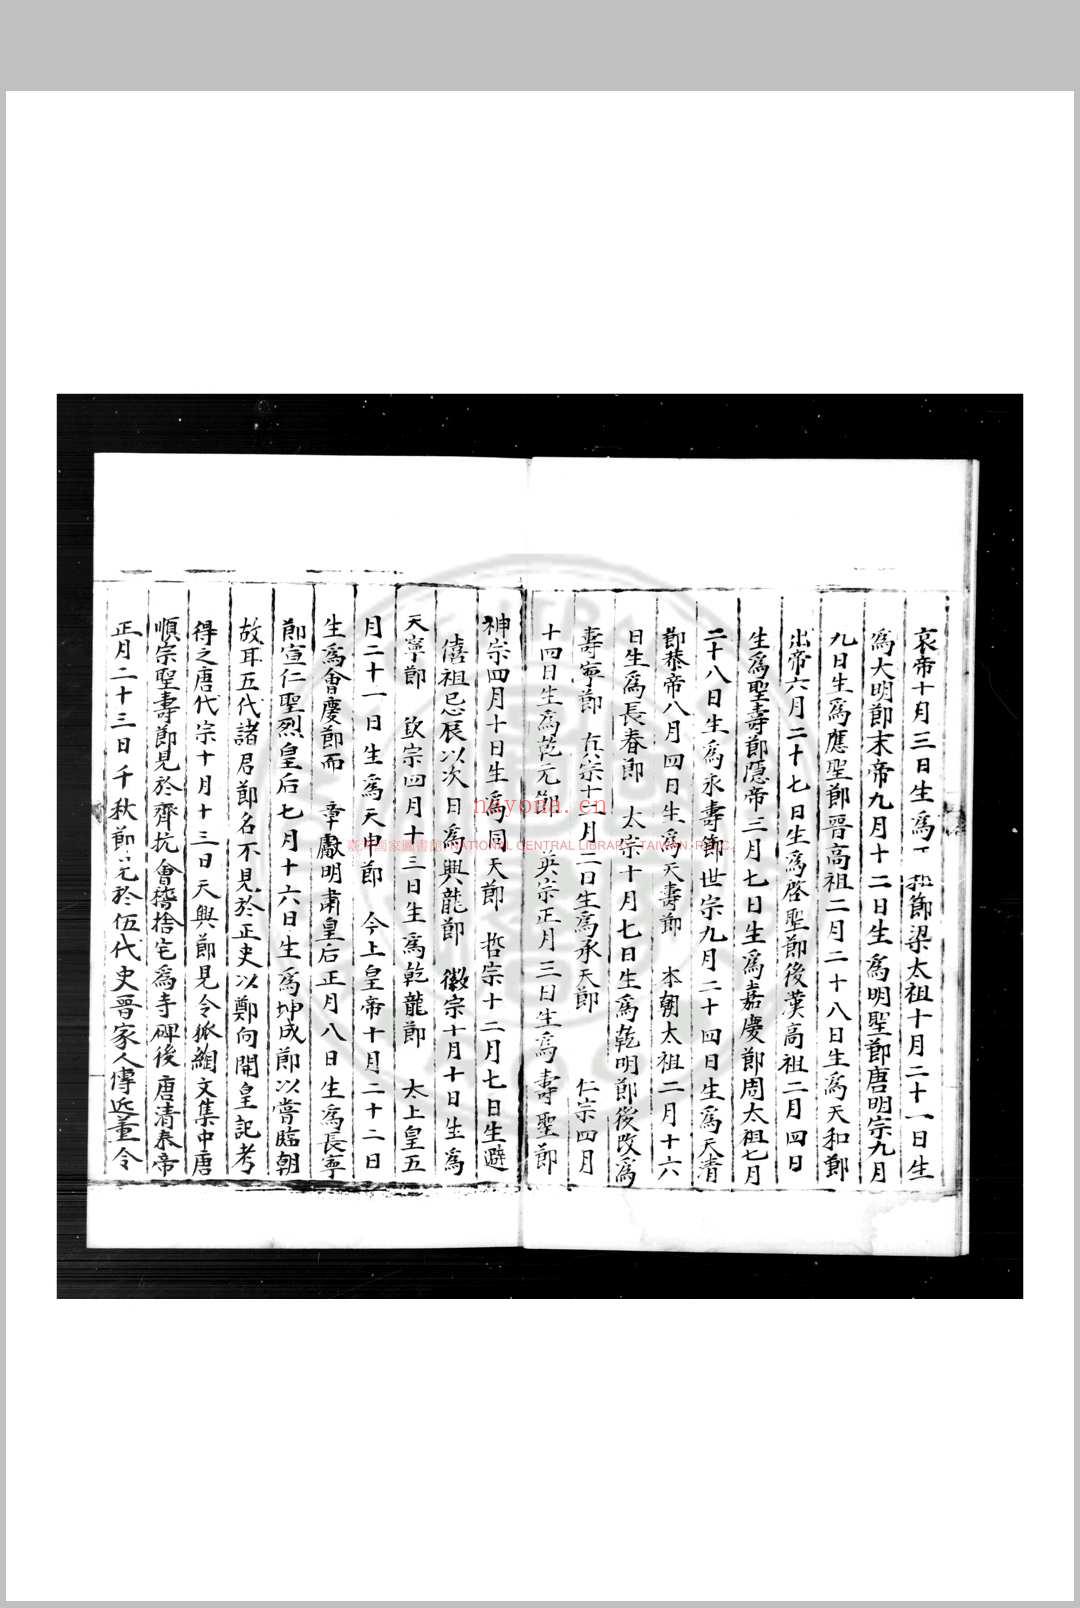 哀帝十月三日生爲　　節梁太祖十月二十一日生
爲大明節末帝九月十二日生爲明聖節唐明宗九月
九日生爲應聖節晉高祖二月二十八日生爲天和節
出帝六月二十七日生爲啓聖節後漢高祖二月四日
生爲聖壽節隱帝三月七日生爲嘉慶節周太祖七月
二十八日生爲永壽節世宗九月二十四日生爲天清
節恭帝八月四日生爲天壽節　本朝太祖二月十六
日生爲長春節　太宗十月七日生爲乾明節後改爲
壽寧節　真宗十二月二日生爲承天節　　仁宗四月
十四日生爲乾元節　英宗正月三日生爲壽聖節
神宗四月十日生爲同天節　哲宗十二月七日生避
僖祖忌辰以次日爲興龍節　徽宗十月十日生爲
天寧節　欽宗四月十三日生爲乾龍節　太上皇五
月二十一日生爲天申節　今上皇帝十月二十二日
生爲會慶節而　章獻明肅皇后正月八日生爲長寧
節宣仁聖烈皇后七月十六日生爲坤成節以嘗臨朝
故耳五代諸君節名不見於正史以鄭向開皇記考
得之唐代宗十月十三日天興節見令狐綯文集中唐
順宗聖壽節見於齊抗會稽捨宅爲寺碑後唐清泰帝
正月二十三日千秋節見於伍代史晋家人傳近董令
nayona.cn
臺灣國家圖書館 NATIONAL CENTRAL LIBRARY, TAIWAN, R.O.C.